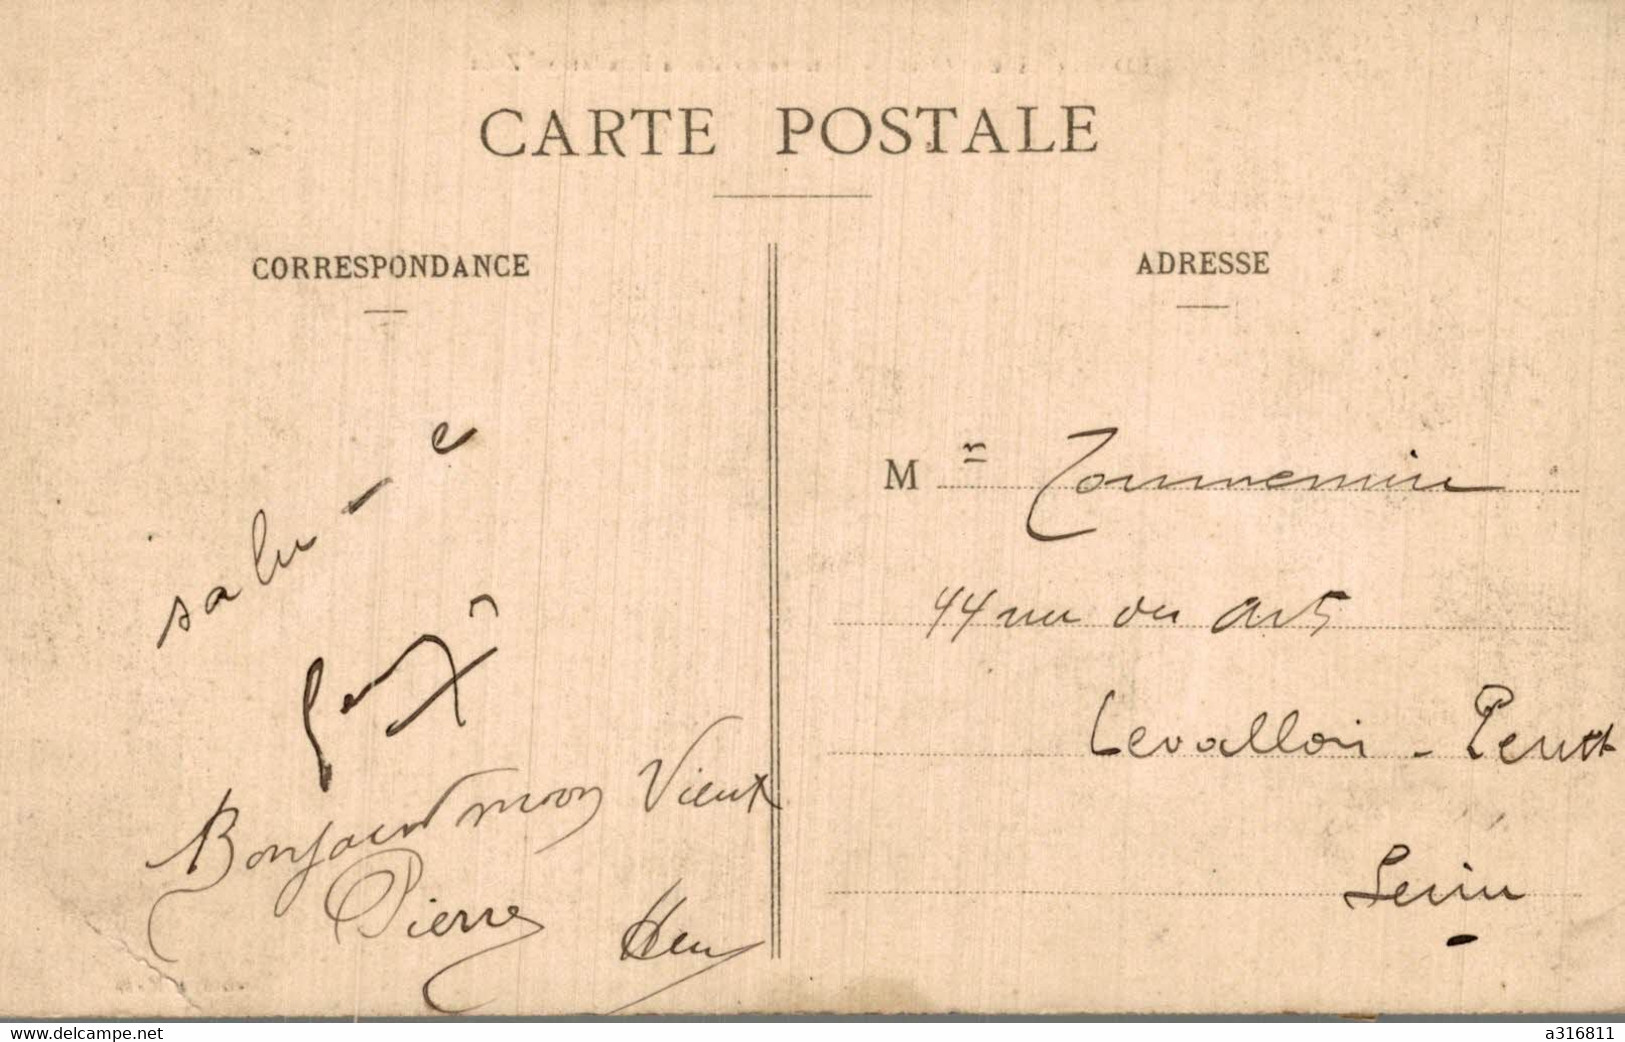 CARTE POSTALE
CORRESPONDANCE
salu - e
Bonjour mon Vieux
Pierre
ADRESSE
M r Tournemine
44 rue des arts
Levallois - Perret
Seine
www.delcampe.net
a316811